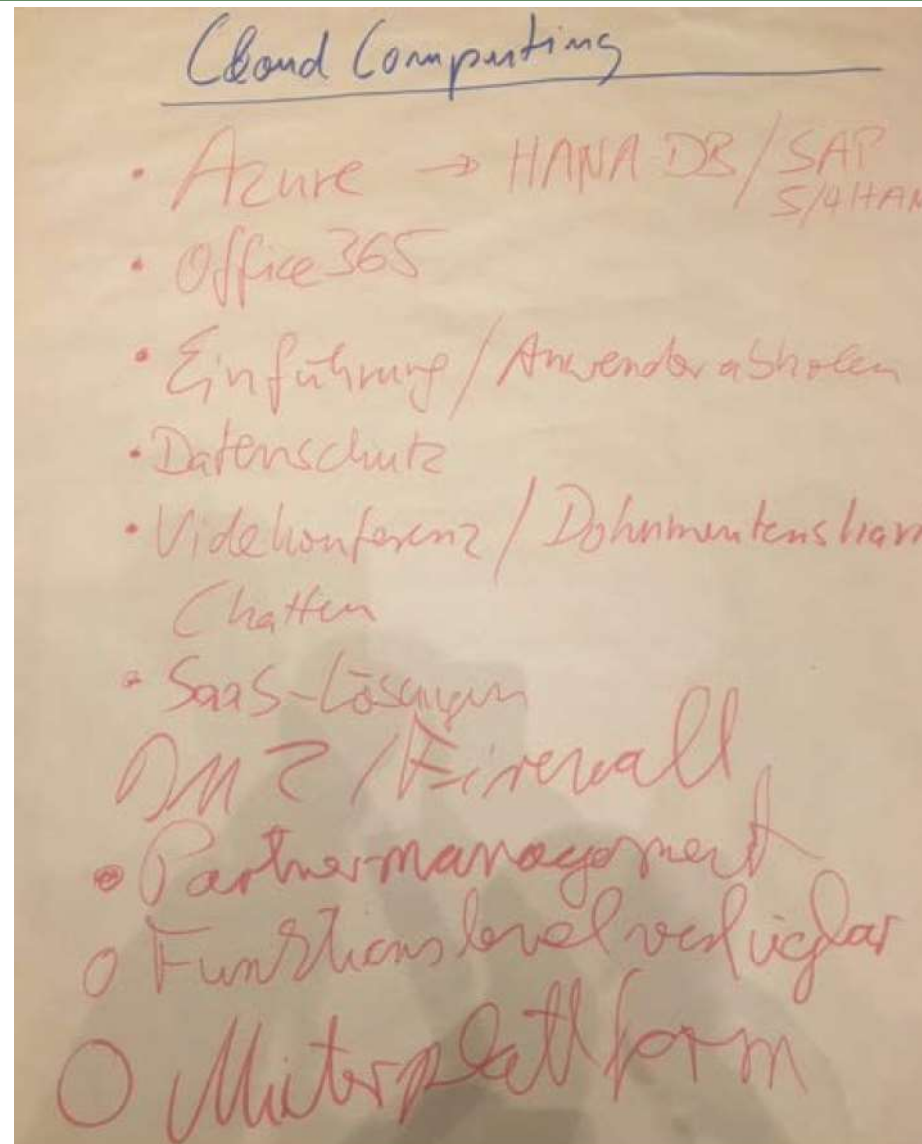 Cloud Computing
• Azure → HANA DB / SAP
S/4HAN
• Office 365
• Einführung / Anwender abholen
• Datenschutz
• Videkonferenz / Dokumentenshar
Chatten
• SaaS-Lösungen
DMZ / Firewall
• Partnermanagement
O Funktionslevel verfügbar
O